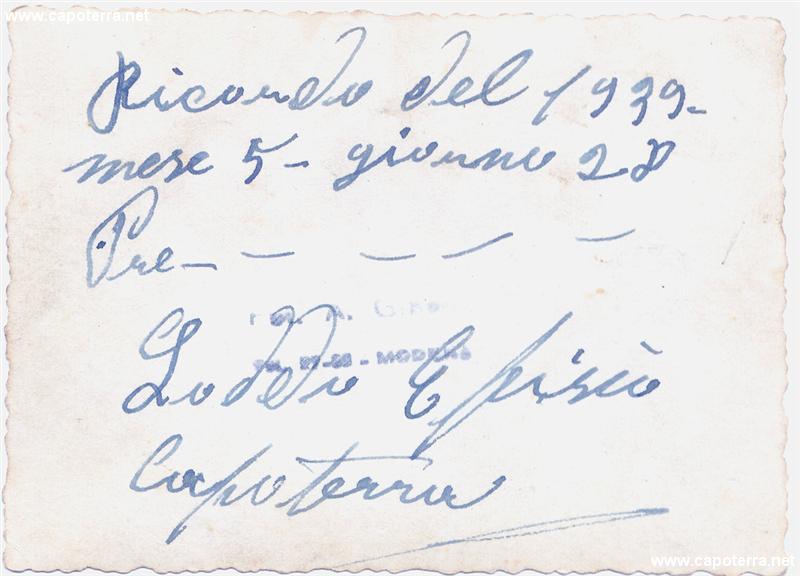 www.capoterra.net
Ricordo del 1939-
mese 5 - giorno 28
Pre_ _ _ _ _ _
A.
- MODENA
Loddo Efisio
Capoterra
www.capoterra.net